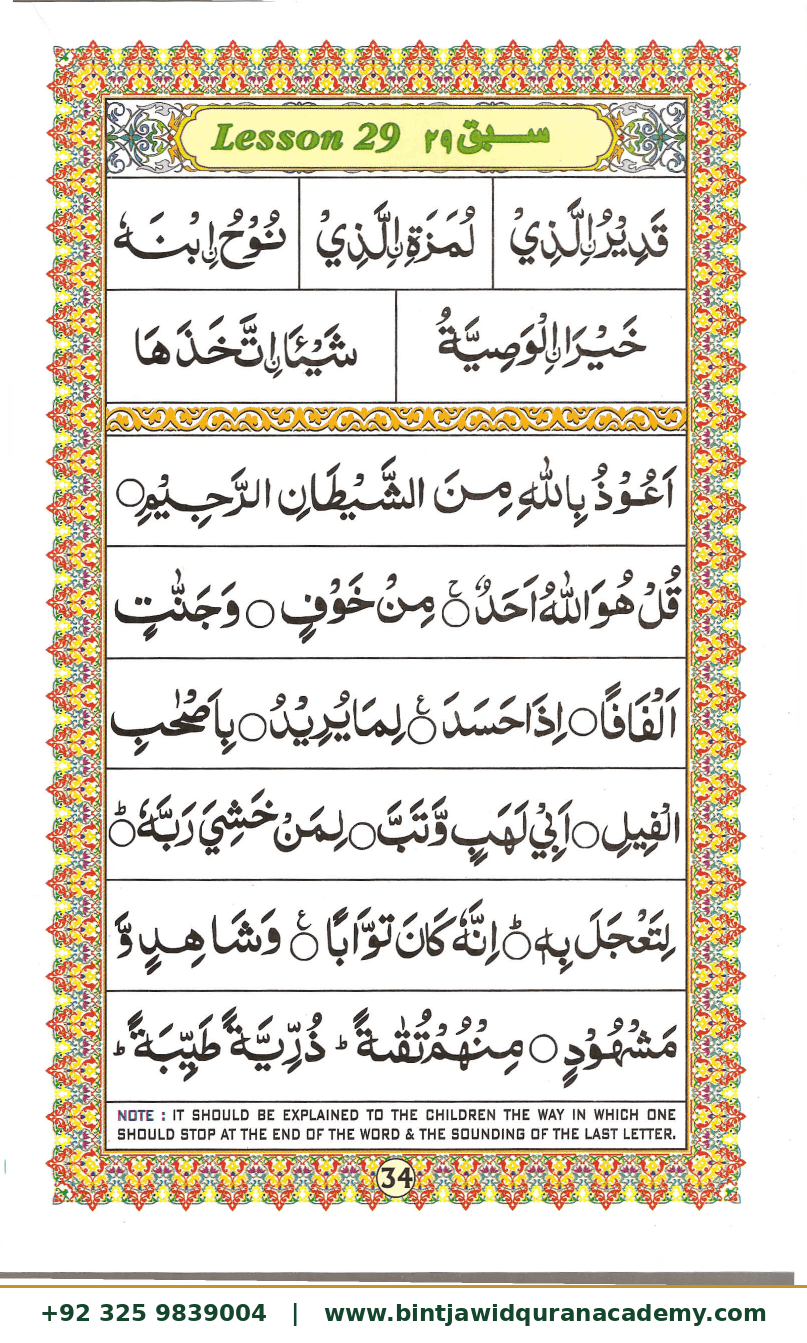 Lesson 29 سبق ٢٩
قَدِيْرُ نِ الَّذِيْ لُمَزَةِ نِ الَّذِيْ نُوْحُ نِ ابْنَهٗ
خَيْرَا نِ الْوَصِيَّةُ شَيْئَا نِ اتَّخَذَهَا
اَعُوْذُ بِاللّٰهِ مِنَ الشَّيْطَانِ الرَّجِيْمِ○
قُلْ هُوَ اللّٰهُ اَحَدٌ○ۚ مِنْ خَوْفٍ○ وَجَنّٰتٍ
اَلْفَافًا○ اِذَا حَسَدَ○ع لِمَا يُرِيْدُ○ بِاَصْحٰبِ
الْفِيْلِ○ اَبِيْ لَهَبٍ وَّتَبَّ○ لِمَنْ خَشِيَ رَبَّهٗ○ؕ
لِتَعْجَلَ بِهٖ○ؕ اِنَّهٗ كَانَ تَوَّابًا○ع وَشَاهِدٍ وَّ
مَشْهُوْدٍ○ مِنْهُمْ تُقٰىةً ؕ ذُرِّيَّةً طَيِّبَةً ؕ
NOTE : IT SHOULD BE EXPLAINED TO THE CHILDREN THE WAY IN WHICH ONE
SHOULD STOP AT THE END OF THE WORD & THE SOUNDING OF THE LAST LETTER.
34
+92 325 9839004 | www.bintjawidquranacademy.com